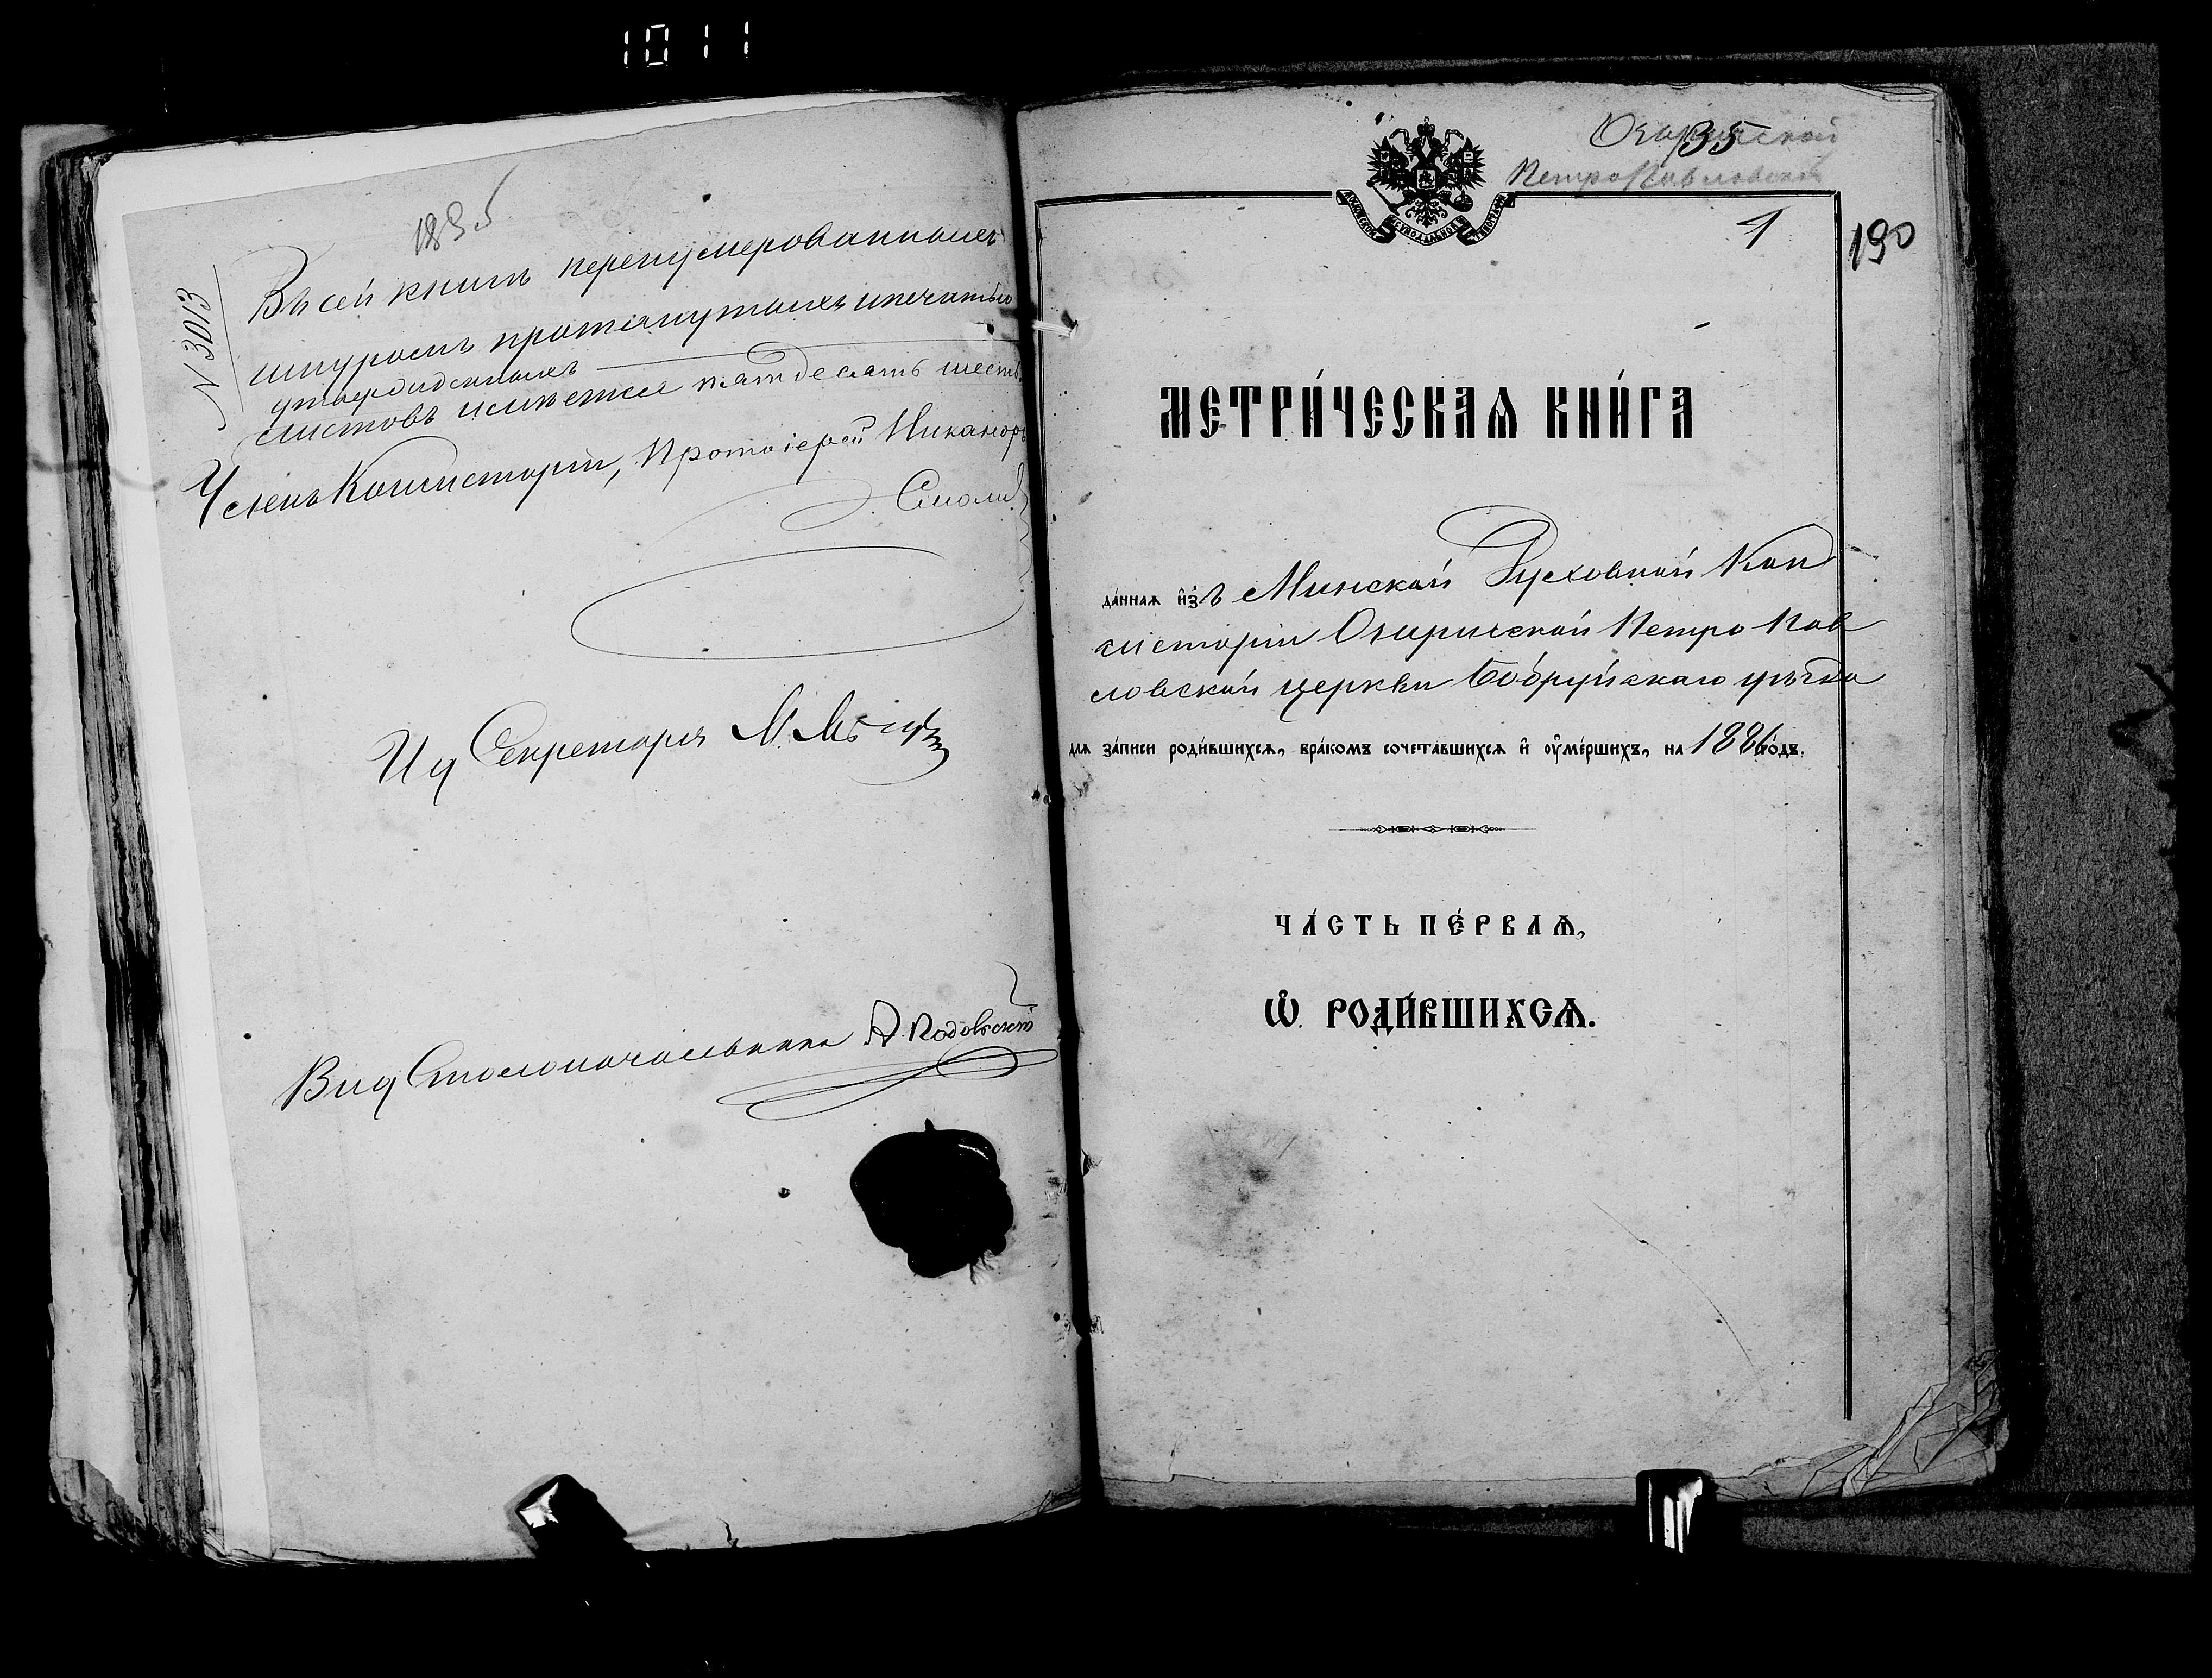 1011
1885
N 3013
Въ сей книгѣ перенумерованныхъ
шнуромъ протянутыхъ и печатью
утвержденныхъ
листовъ имѣется пятьдесятъ шесть.
Членъ Консисторіи, Протоіерей Никаноръ
Смолич
И д Секретаря М.
Вид Столоначальника А.
Озаричской
35
Петропавловской
МОСКОВСКОЙ СѴНОДАЛЬНОЙ ТИПОГРАФІИ
1
190
МЕТРИ́ЧЕСКАѦ КНИ́ГА
да́ннаѧ и҆зъ Минской Духовной Кон
систоріи Озаричской Петро Пав
ловской церкви Бобруйскаго уѣзда
длѧ за́писи роди́вшихсѧ, бра́комъ сочета́вшихсѧ и҆ оу҆ме́ршихъ, на 1886 го́дъ.
ЧА́СТЬ ПЕ́РВАѦ,
Ѡ҆ РОДИ́ВШИХСѦ.